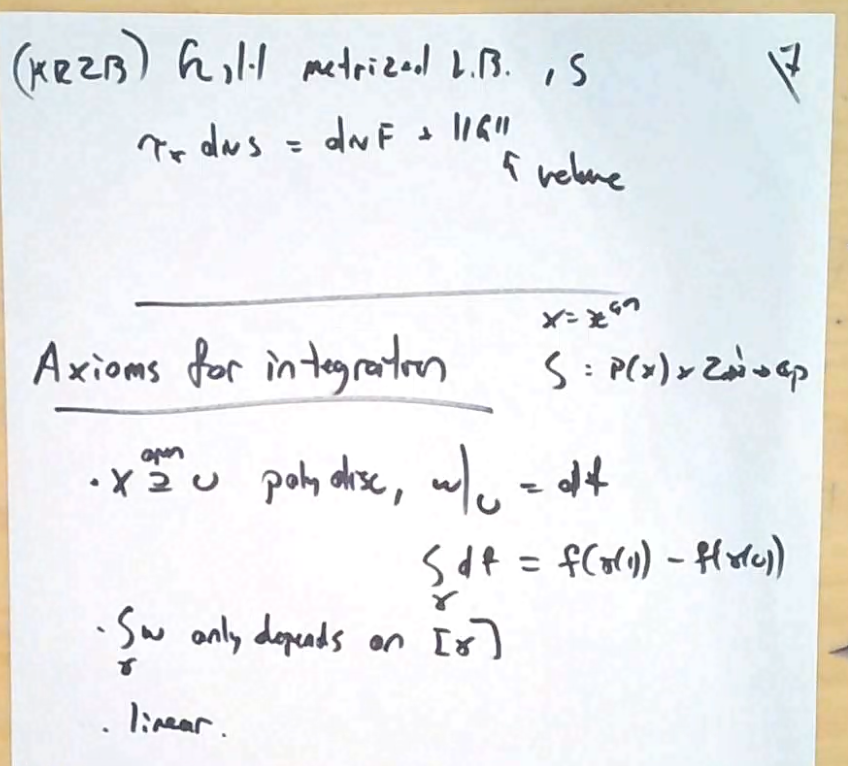 (KRZB) h, |·| metrized L.B., S
17
div S = div F + "G"
volume
x = x^an
Axioms for integration
∫ : P(x) x
· X ⊇ U poly disc, ω|_U = df
open
∫_γ df = f(γ(1)) - f(γ(0))
· ∫_γ ω only depends on [γ]
· linear.